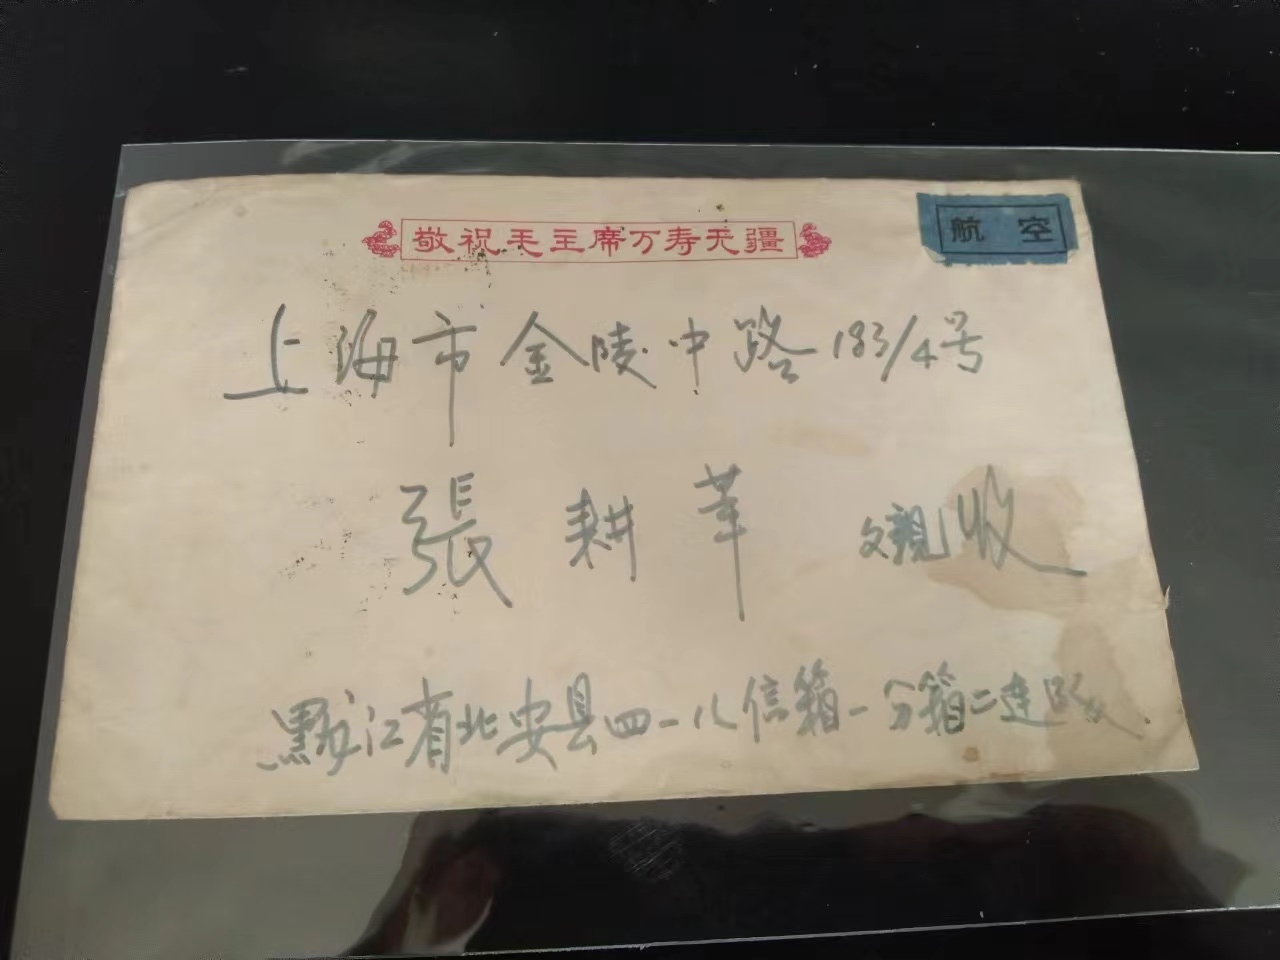 敬祝毛主席万寿无疆
航空
上海市金陵中路183/4号
張耕莘 父親收
黑龙江省北安县四一八信箱一分箱二连队